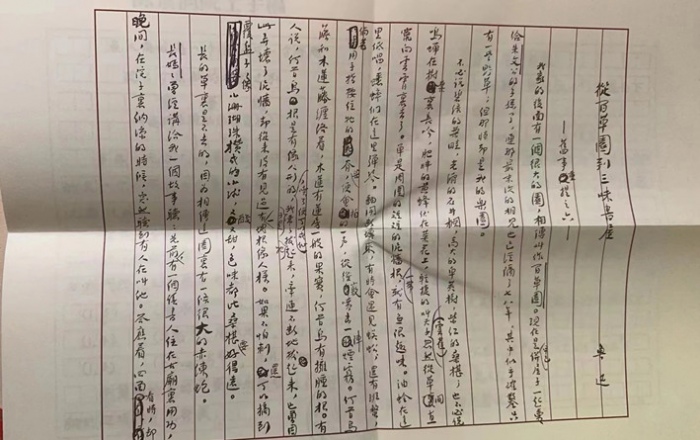 從百草園到三味書屋
——舊事重提之六——
魯迅
我家的後面有一個很大的園，相傳叫作百草園。現在是
給朱文公的子孫了，連那最末次的相見也已經隔了七八年，其中似乎確鑿只
有一些野草；但那時却是我的樂園。
不必說碧綠的菜畦，光滑的石井欄，高大的皂莢樹，紫紅的桑椹；也不必說
鳴蟬在樹裏長吟，肥胖的黃蜂伏在菜花上，輕捷的叫天子（雲雀）忽然從草間直
竄向雲霄裏去了。單是周圍的短短的泥牆根，就有無限趣味。油蛉在這
裏低唱，蟋蟀們在這裏彈琴。翻開斷磚來，有時會遇見蜈蚣；還有斑蝥，
用手指按住牠的脊梁，便會拍的一聲，從後竅噴出一陣煙霧。何首烏
藤和木蓮藤纏絡着，木蓮有蓮房一般的果實，何首烏有擁腫的根。有
人說，何首烏根是有像人形的，吃了便可以成仙，我於是常常拔它起來，牽連不斷地拔起來，也曾因
此弄壞了泥牆，却從來沒有見過有一塊根像人樣。如果不怕刺，還可以摘到
覆盆子，像小珊瑚珠攢成的小球，又酸又甜，色味都比桑椹好得遠。
長的草裏是不去的，因為相傳這園裏有一條很大的赤練蛇。
長媽媽曾經講給我一個故事聽：先前有一個讀書人住在古廟裏用功，
晚間，在院子裏納涼的時候，突然聽到有人在叫他。答應着，四面